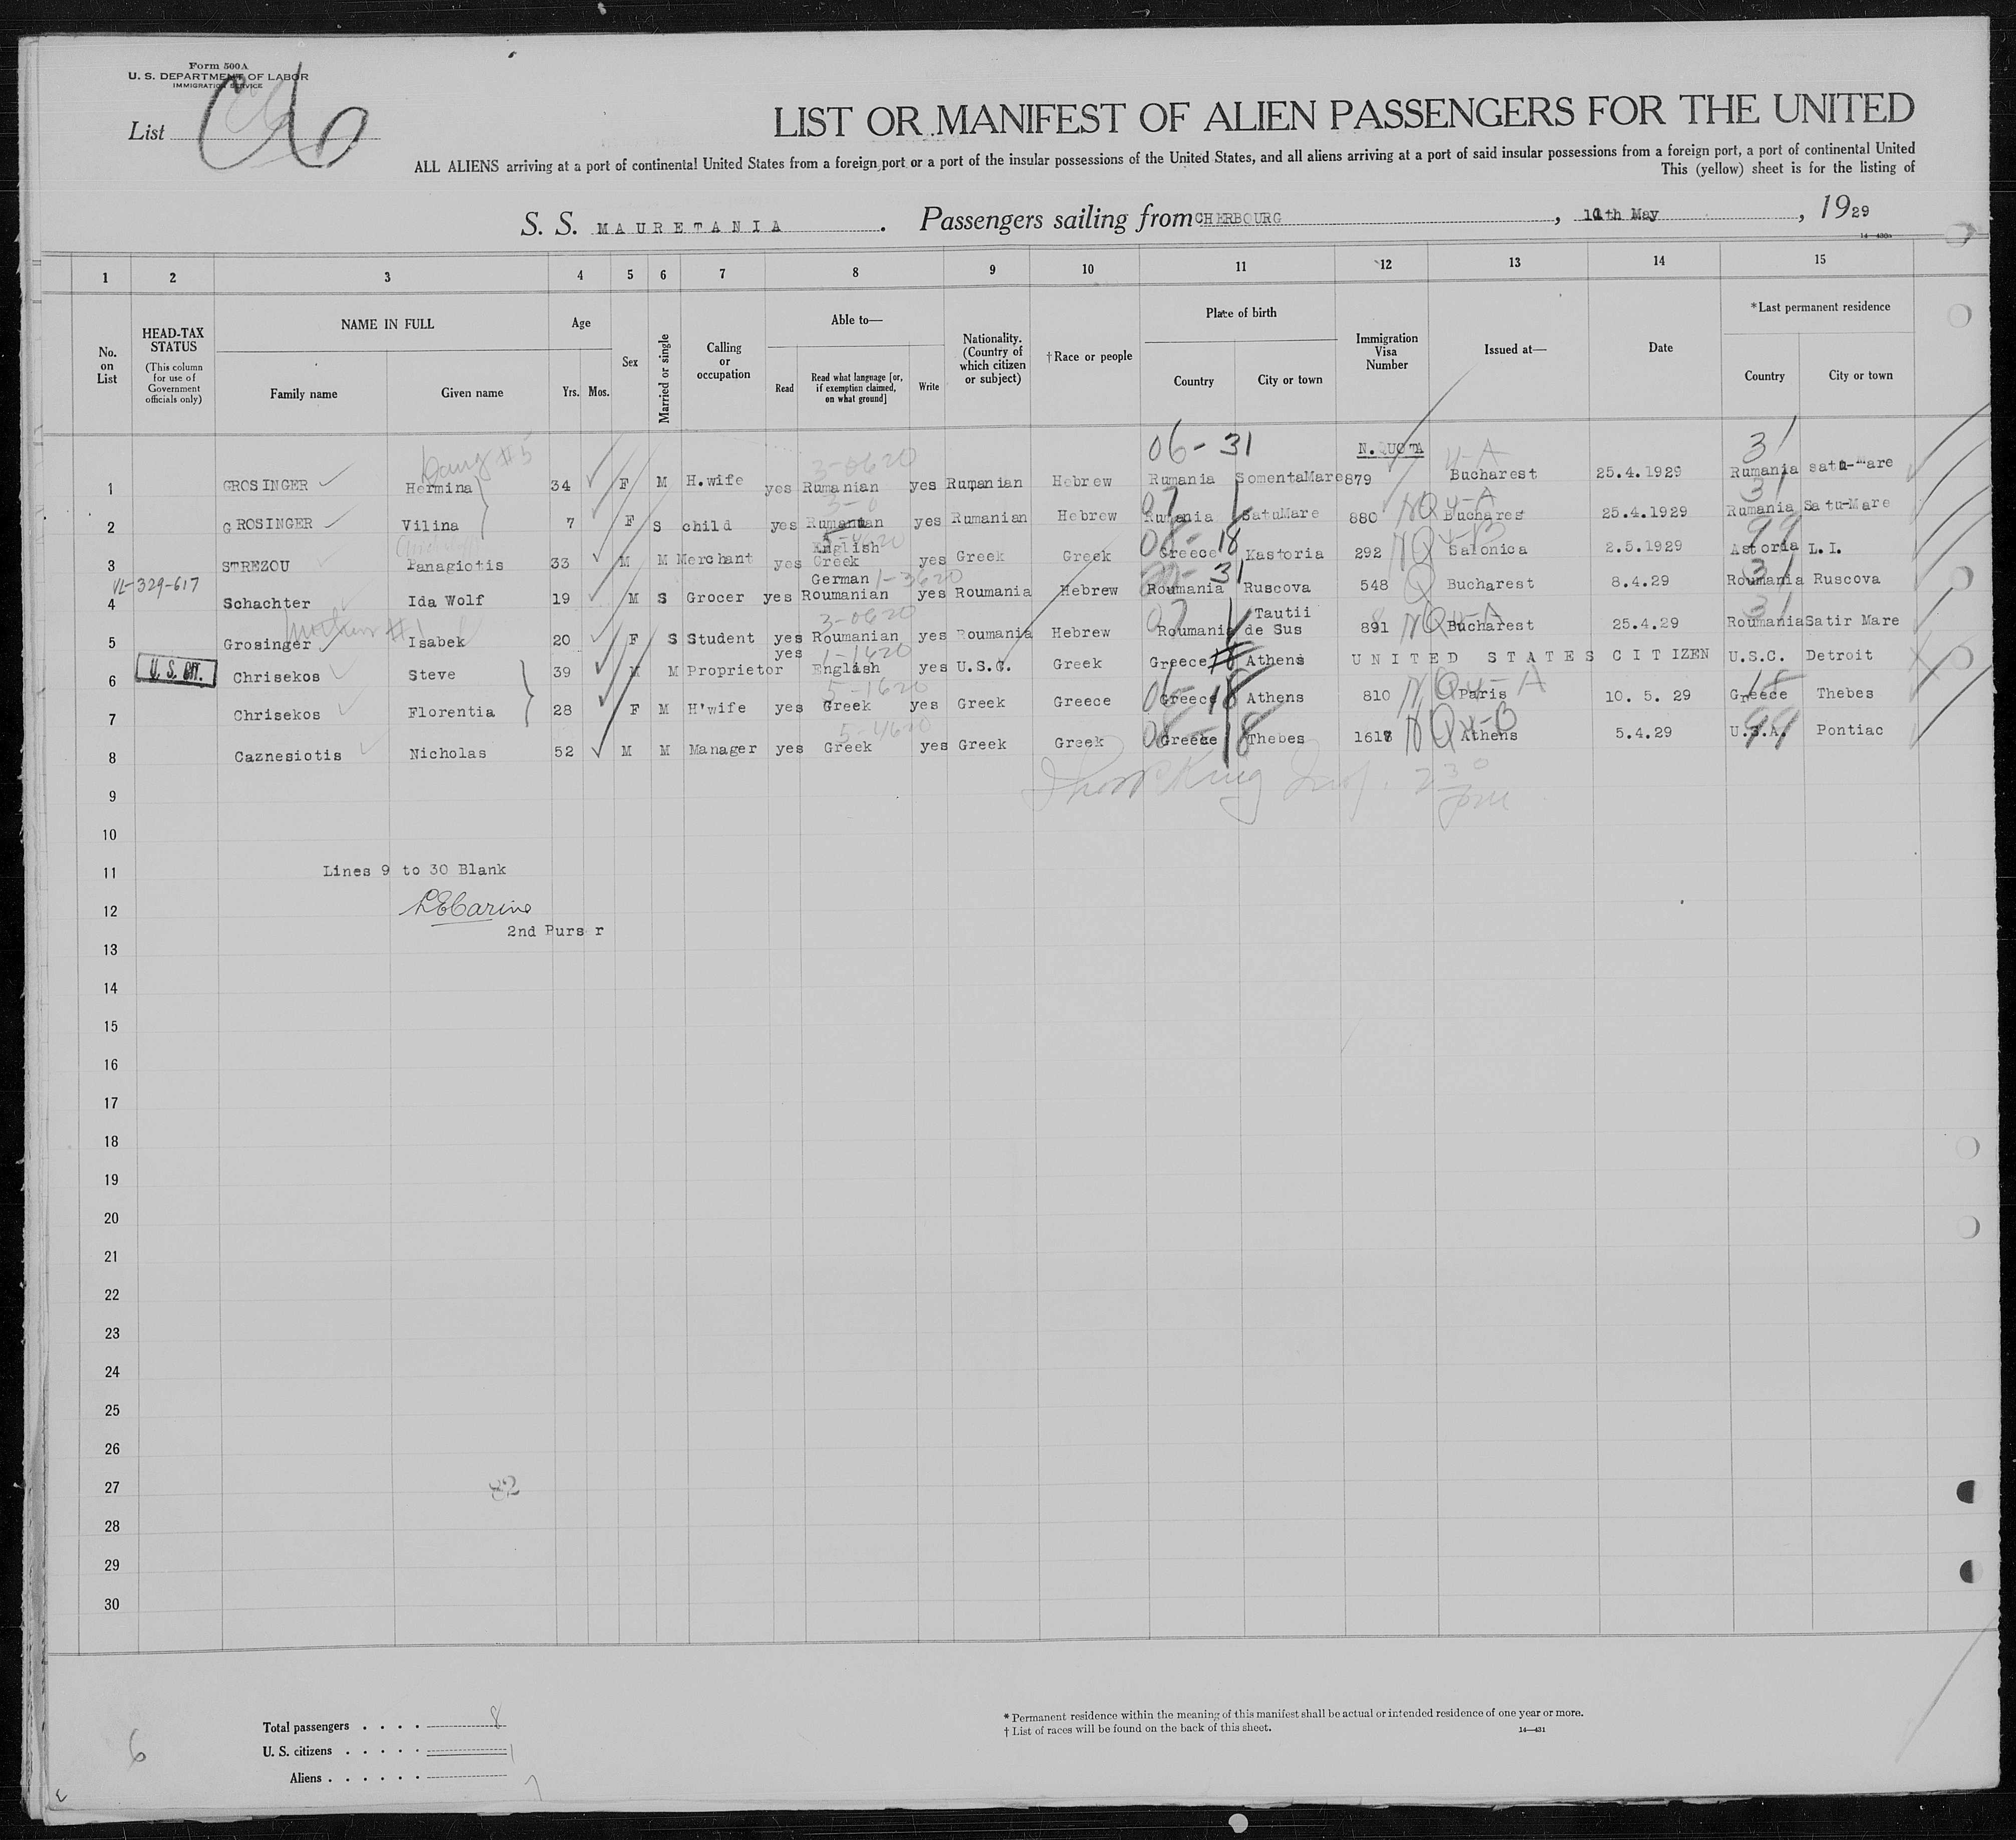 Form 500A
U. S. DEPARTMENT OF LABOR
IMMIGRATION SERVICE
List
LIST OR MANIFEST OF ALIEN PASSENGERS FOR THE UNITED
ALL ALIENS arriving at a port of continental United States from a foreign port or a port of the insular possessions of the United States, and all aliens arriving at a port of said insular possessions from a foreign port, a port of continental United
This (yellow) sheet is for the listing of
S. S. MAURETANIA. Passengers sailing from CHERBOURG, May, 1929
14—430a
1 2 3 4 5 6 7 8 9 10 11 12 13 14 15
No. on List
HEAD-TAX STATUS (This column for use of Government officials only)
NAME IN FULL
Family name Given name
Age
Yrs. Mos.
Sex
Married or single
Calling or occupation
Able to—
Read
Read what language [or, if exemption claimed, on what ground]
Write
Nationality. (Country of which citizen or subject)
†Race or people
Place of birth
Country City or town
Immigration Visa Number
Issued at—
Date
*Last permanent residence
Country City or town
06-31 N. QUOTA 31
Daug #5 3-0620 4-A
1 GROSINGER Hermina 34 F M H.wife yes Rumanian yes Rumanian Hebrew Rumania SomentaMare 879 Bucharest 25.4.1929 Rumania Satu-Mare
2 GROSINGER Vilina 7 F S child yes Rumanian yes Rumanian Hebrew Rumania SatuMare 880 NQ 4-A Buchares 25.4.1929 Rumania Satu-Mare
3 STREZOU Panagiotis 33 M M Merchant yes English Greek yes Greek Greek Greece Kastoria 292 NQ 4-B Salonica 2.5.1929 Astoria L. I.
VL-329-617
4 Schachter Ida Wolf 19 M S Grocer yes German Roumanian yes Roumania Hebrew Roumania Ruscova 548 Q Bucharest 8.4.29 Roumania Ruscova
Mother #1 3-0620
5 Grosinger Isabek 20 F S Student yes Roumanian yes Roumania Hebrew Roumania Tautii de Sus 891 NQ 4-A Bucharest 25.4.29 Roumania Satir Mare
6 U. S. CIT. Chrisekos Steve 39 M M Proprietor yes English yes U.S.C. Greek Greece Athens UNITED STATES CITIZEN U.S.C. Detroit
5-1620
7 Chrisekos Florentia 28 F M H'wife yes Greek yes Greek Greece Greece Athens 810 NQ 4-A Paris 10. 5. 29 Greece Thebes
5-4620
8 Caznesiotis Nicholas 52 M M Manager yes Greek yes Greek Greek Greece Thebes 1618 NQ 4-B Athens 5.4.29 U.S.A. Pontiac
9
10
11 Lines 9 to 30 Blank
12
2nd Purs r
13
14
15
16
17
18
19
20
21
22
23
24
25
26
27
28
29
30
Total passengers 8
U. S. citizens 1
Aliens 7
6
* Permanent residence within the meaning of this manifest shall be actual or intended residence of one year or more.
† List of races will be found on the back of this sheet.
14—431